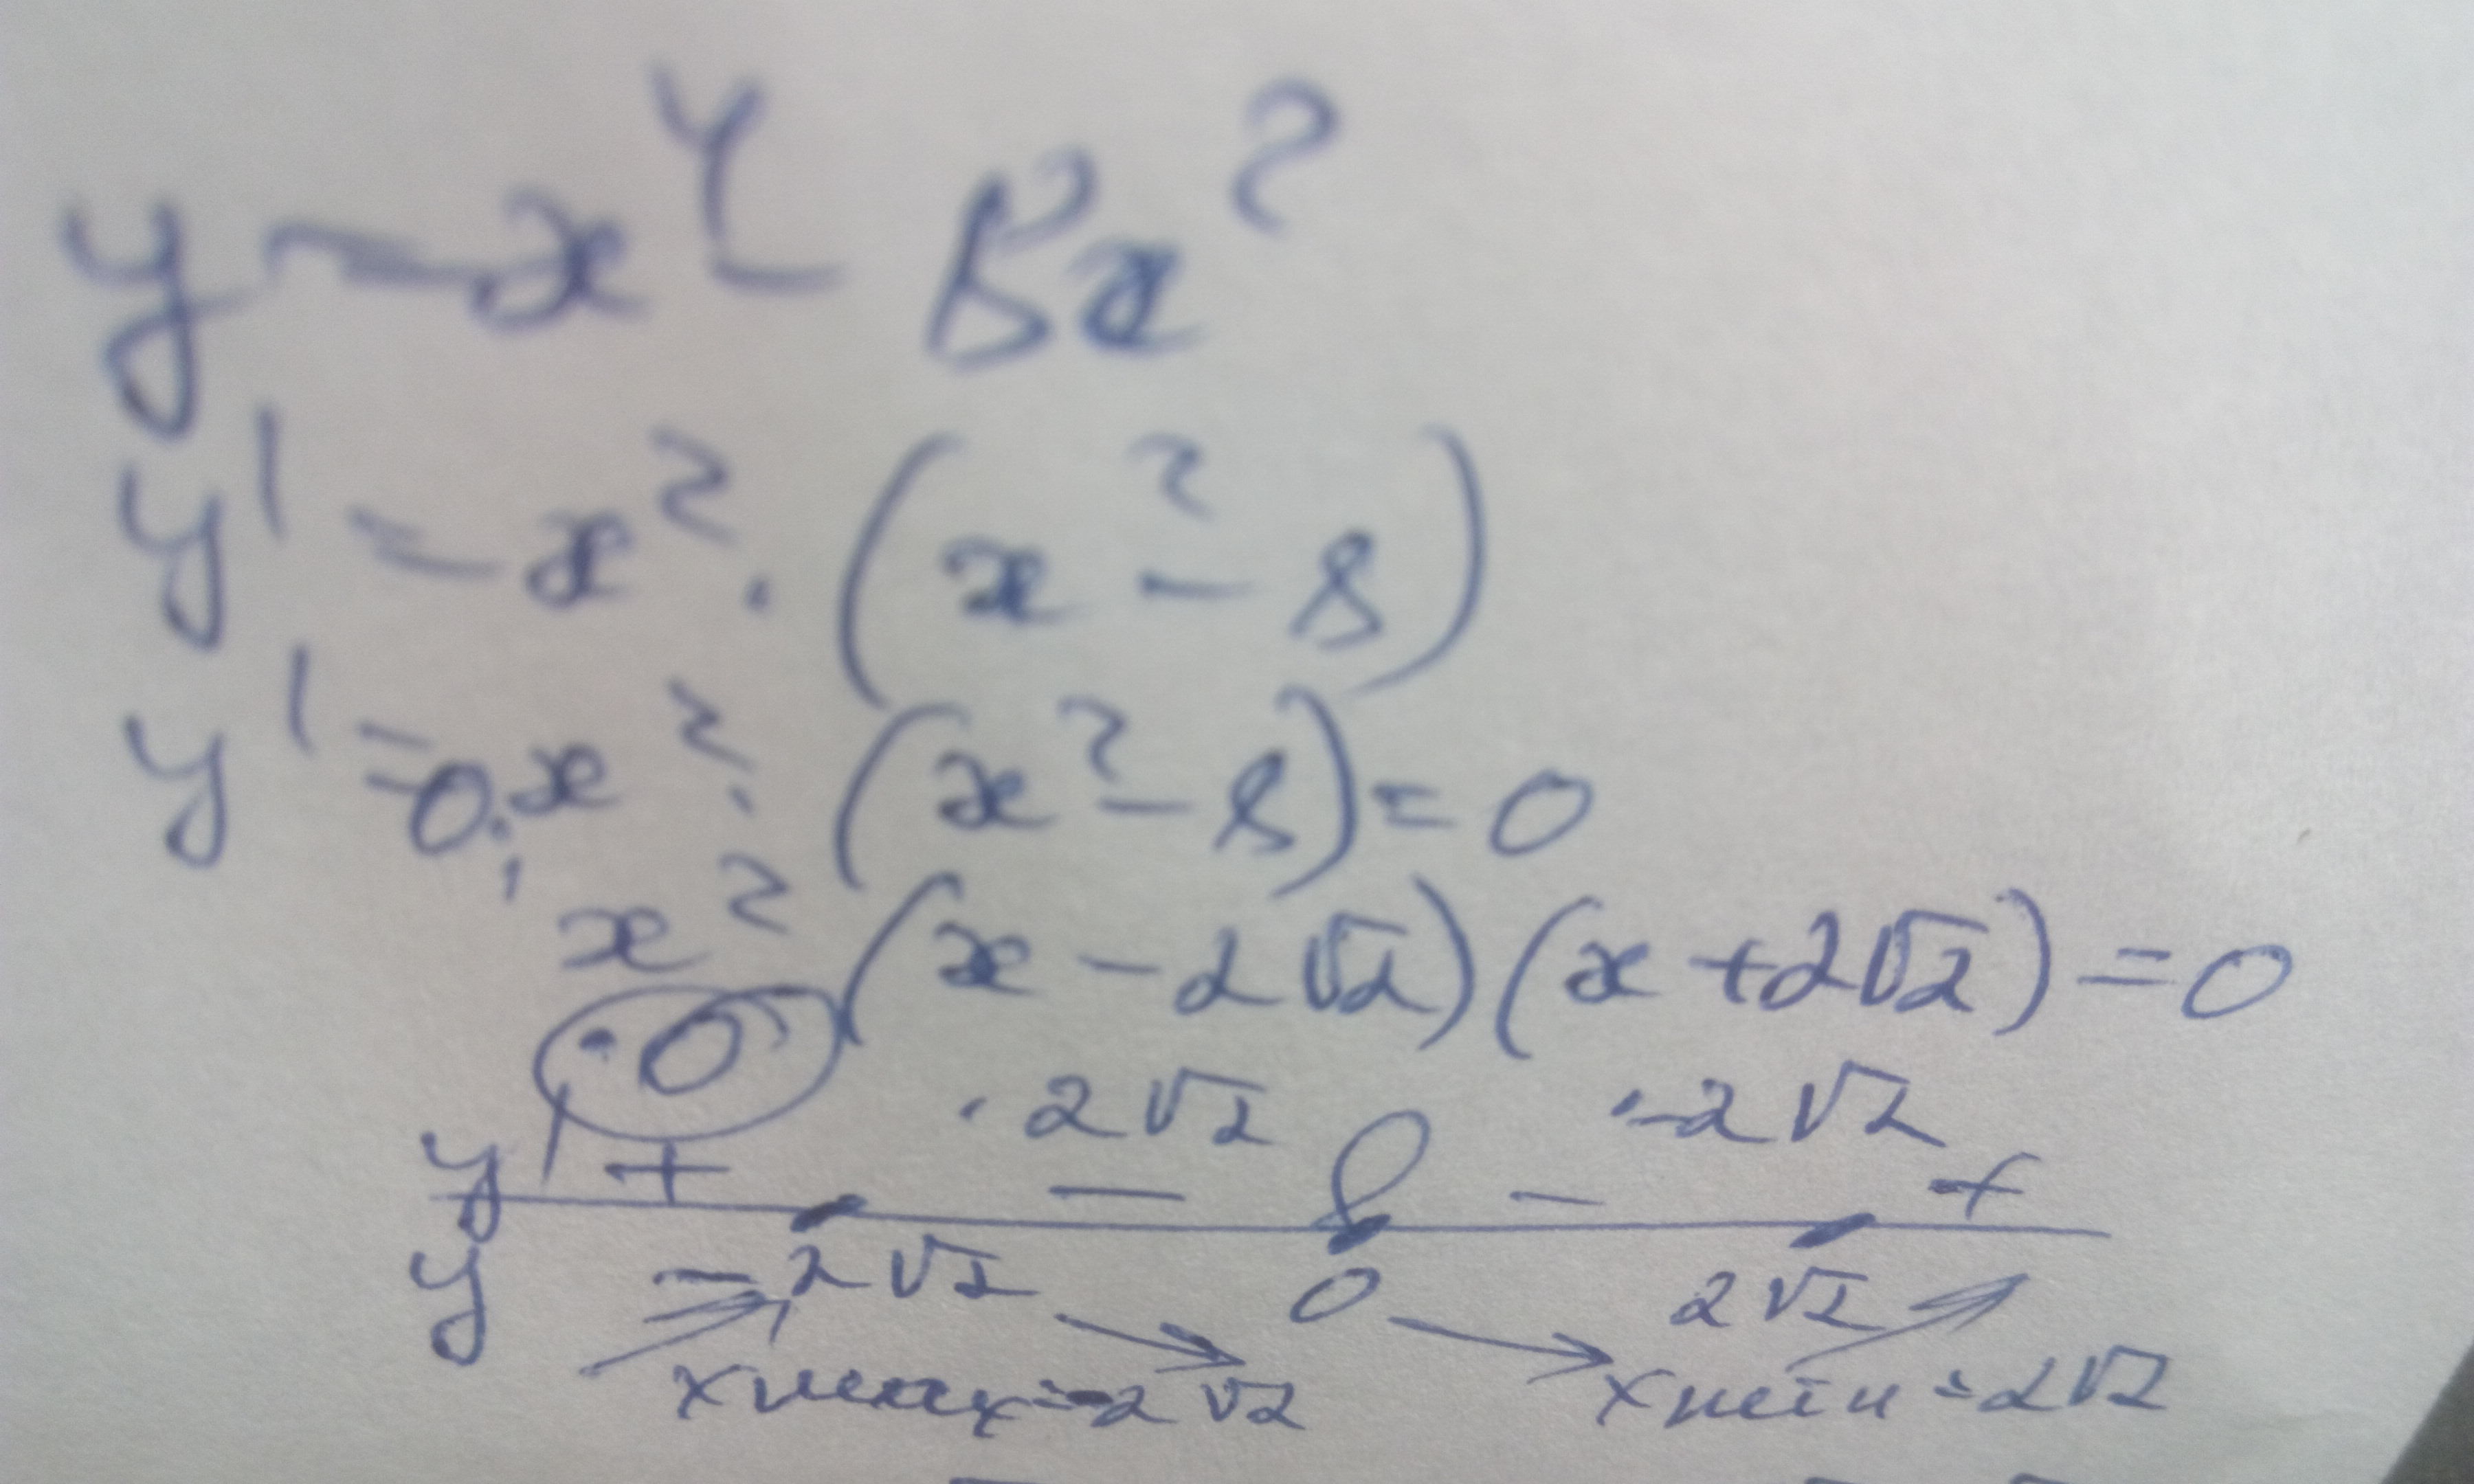 y = x⁴ - 8x²
y' = x² · (x² - 8)
y' = 0; x² · (x² - 8) = 0
x² (x - 2√2)(x + 2√2) = 0
· 0 · 2√2 · -2√2
y' + - - +
-2√2 0 2√2
y
x max = -2√2 x min = 2√2